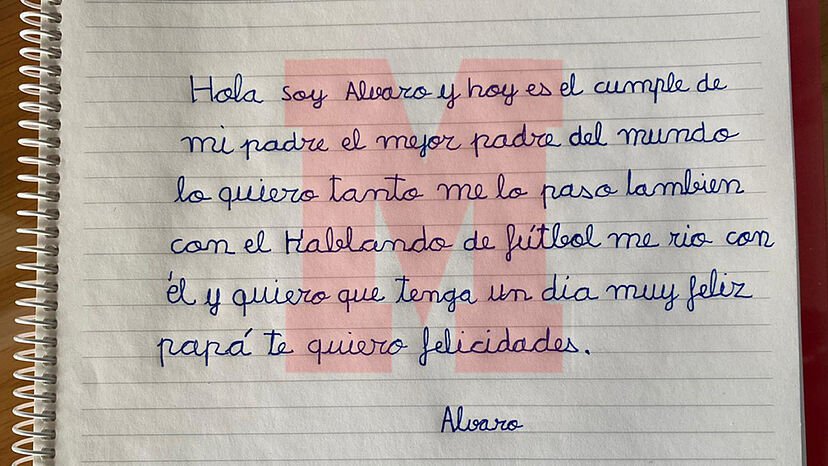 Hola soy Alvaro y hoy es el cumple de
mi padre el mejor padre del mundo
lo quiero tanto me lo paso tambien
con el Hablando de fútbol me rio con
él y quiero que tenga un dia muy feliz
papá te quiero felicidades.
Alvaro
M